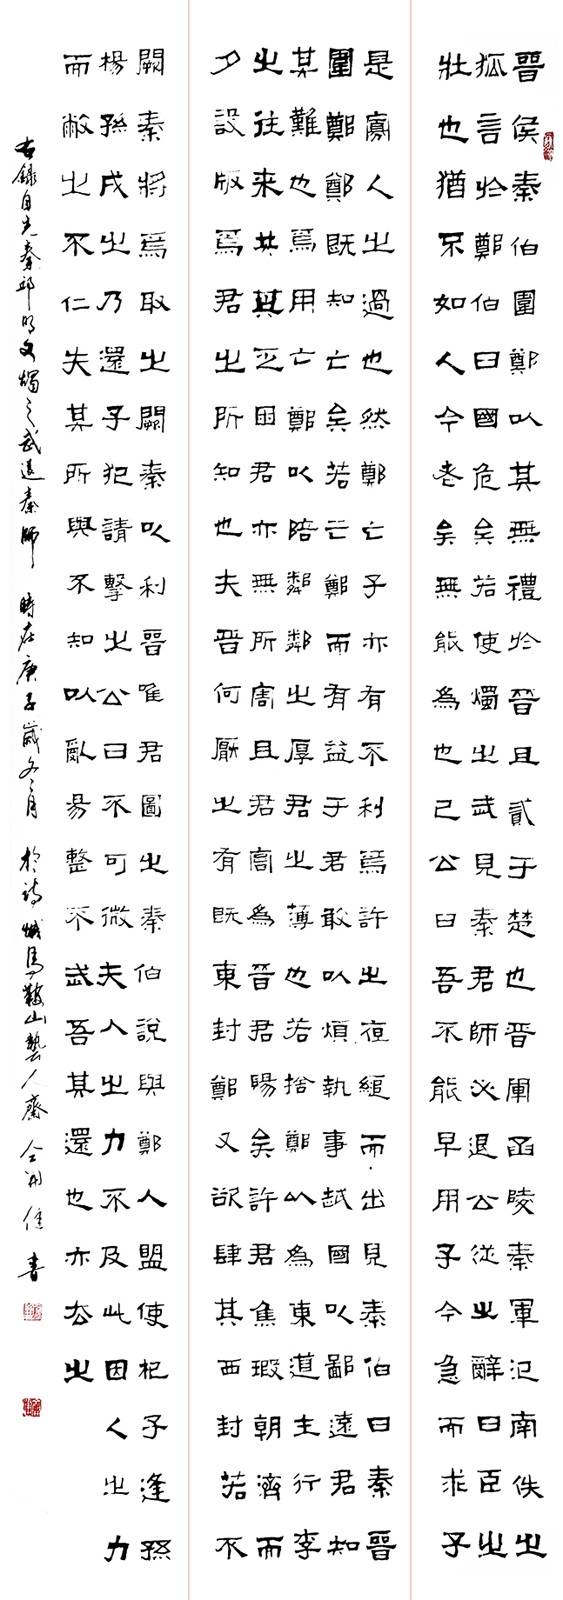 晉侯秦伯圍鄭以其無禮於晉且貳于楚也晉軍函陵秦軍氾南佚之
狐言於鄭伯曰國危矣若使燭之武見秦君師必退公從之辭曰臣之
壯也猶不如人今老矣無能為也已公曰吾不能早用子今急而求子
是寡人之過也然鄭亡子亦有不利焉許之夜縋而出見秦伯曰秦晉
圍鄭鄭既知亡矣若亡鄭而有益于君敢以煩執事越國以鄙遠君知
其難也焉用亡鄭以陪鄰鄰之厚君之薄也若捨鄭以為東道主行李
之往來共其乏困君亦無所害且君嘗為晉君賜矣許君焦瑕朝濟而
夕設版焉君之所知也夫晉何厭之有既東封鄭又欲肆其西封若不
闕秦將焉取之闕秦以利晉唯君圖之秦伯說與鄭人盟使杞子逢孫
楊孫戍之乃還子犯請擊之公曰不可微夫人之力不及此因人之力
而敝之不仁失其所與不知以亂易整不武吾其還也亦去之
右錄自先秦邱明文燭之武退秦師 時在庚子歲冬月 於詩城馬鞍山藝人齋 仝 書